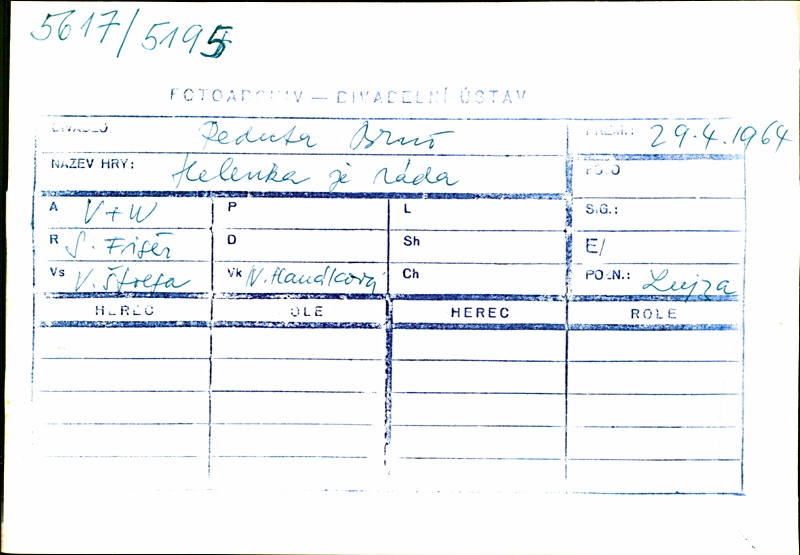 5617/5195
FOTOARCHIV — DIVADELNÍ ÚSTAV
DIVADLO Reduta Brno PREM.: 29.4.1964
NÁZEV HRY: Helenka je ráda FOTO
A V+W P L SIG.:
R S. Fišer D Sh E/
Vs V. Štolfa Vk N. Hanáková Ch POZN.: Lujza
HEREC ROLE HEREC ROLE